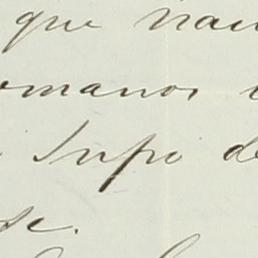 que nau
omanos
Supo de
se.